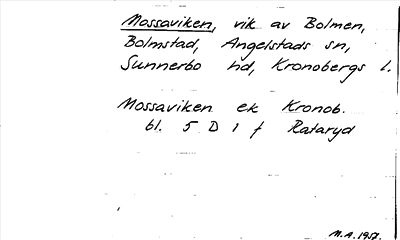 Mossaviken, vik av Bolmen,
Bolmstad, Angelstads sn,
Sunnerbo hd, Kronobergs l.
Mossaviken ek Kronob.
bl. 5 D 1 f Rataryd
M.A. 1957.